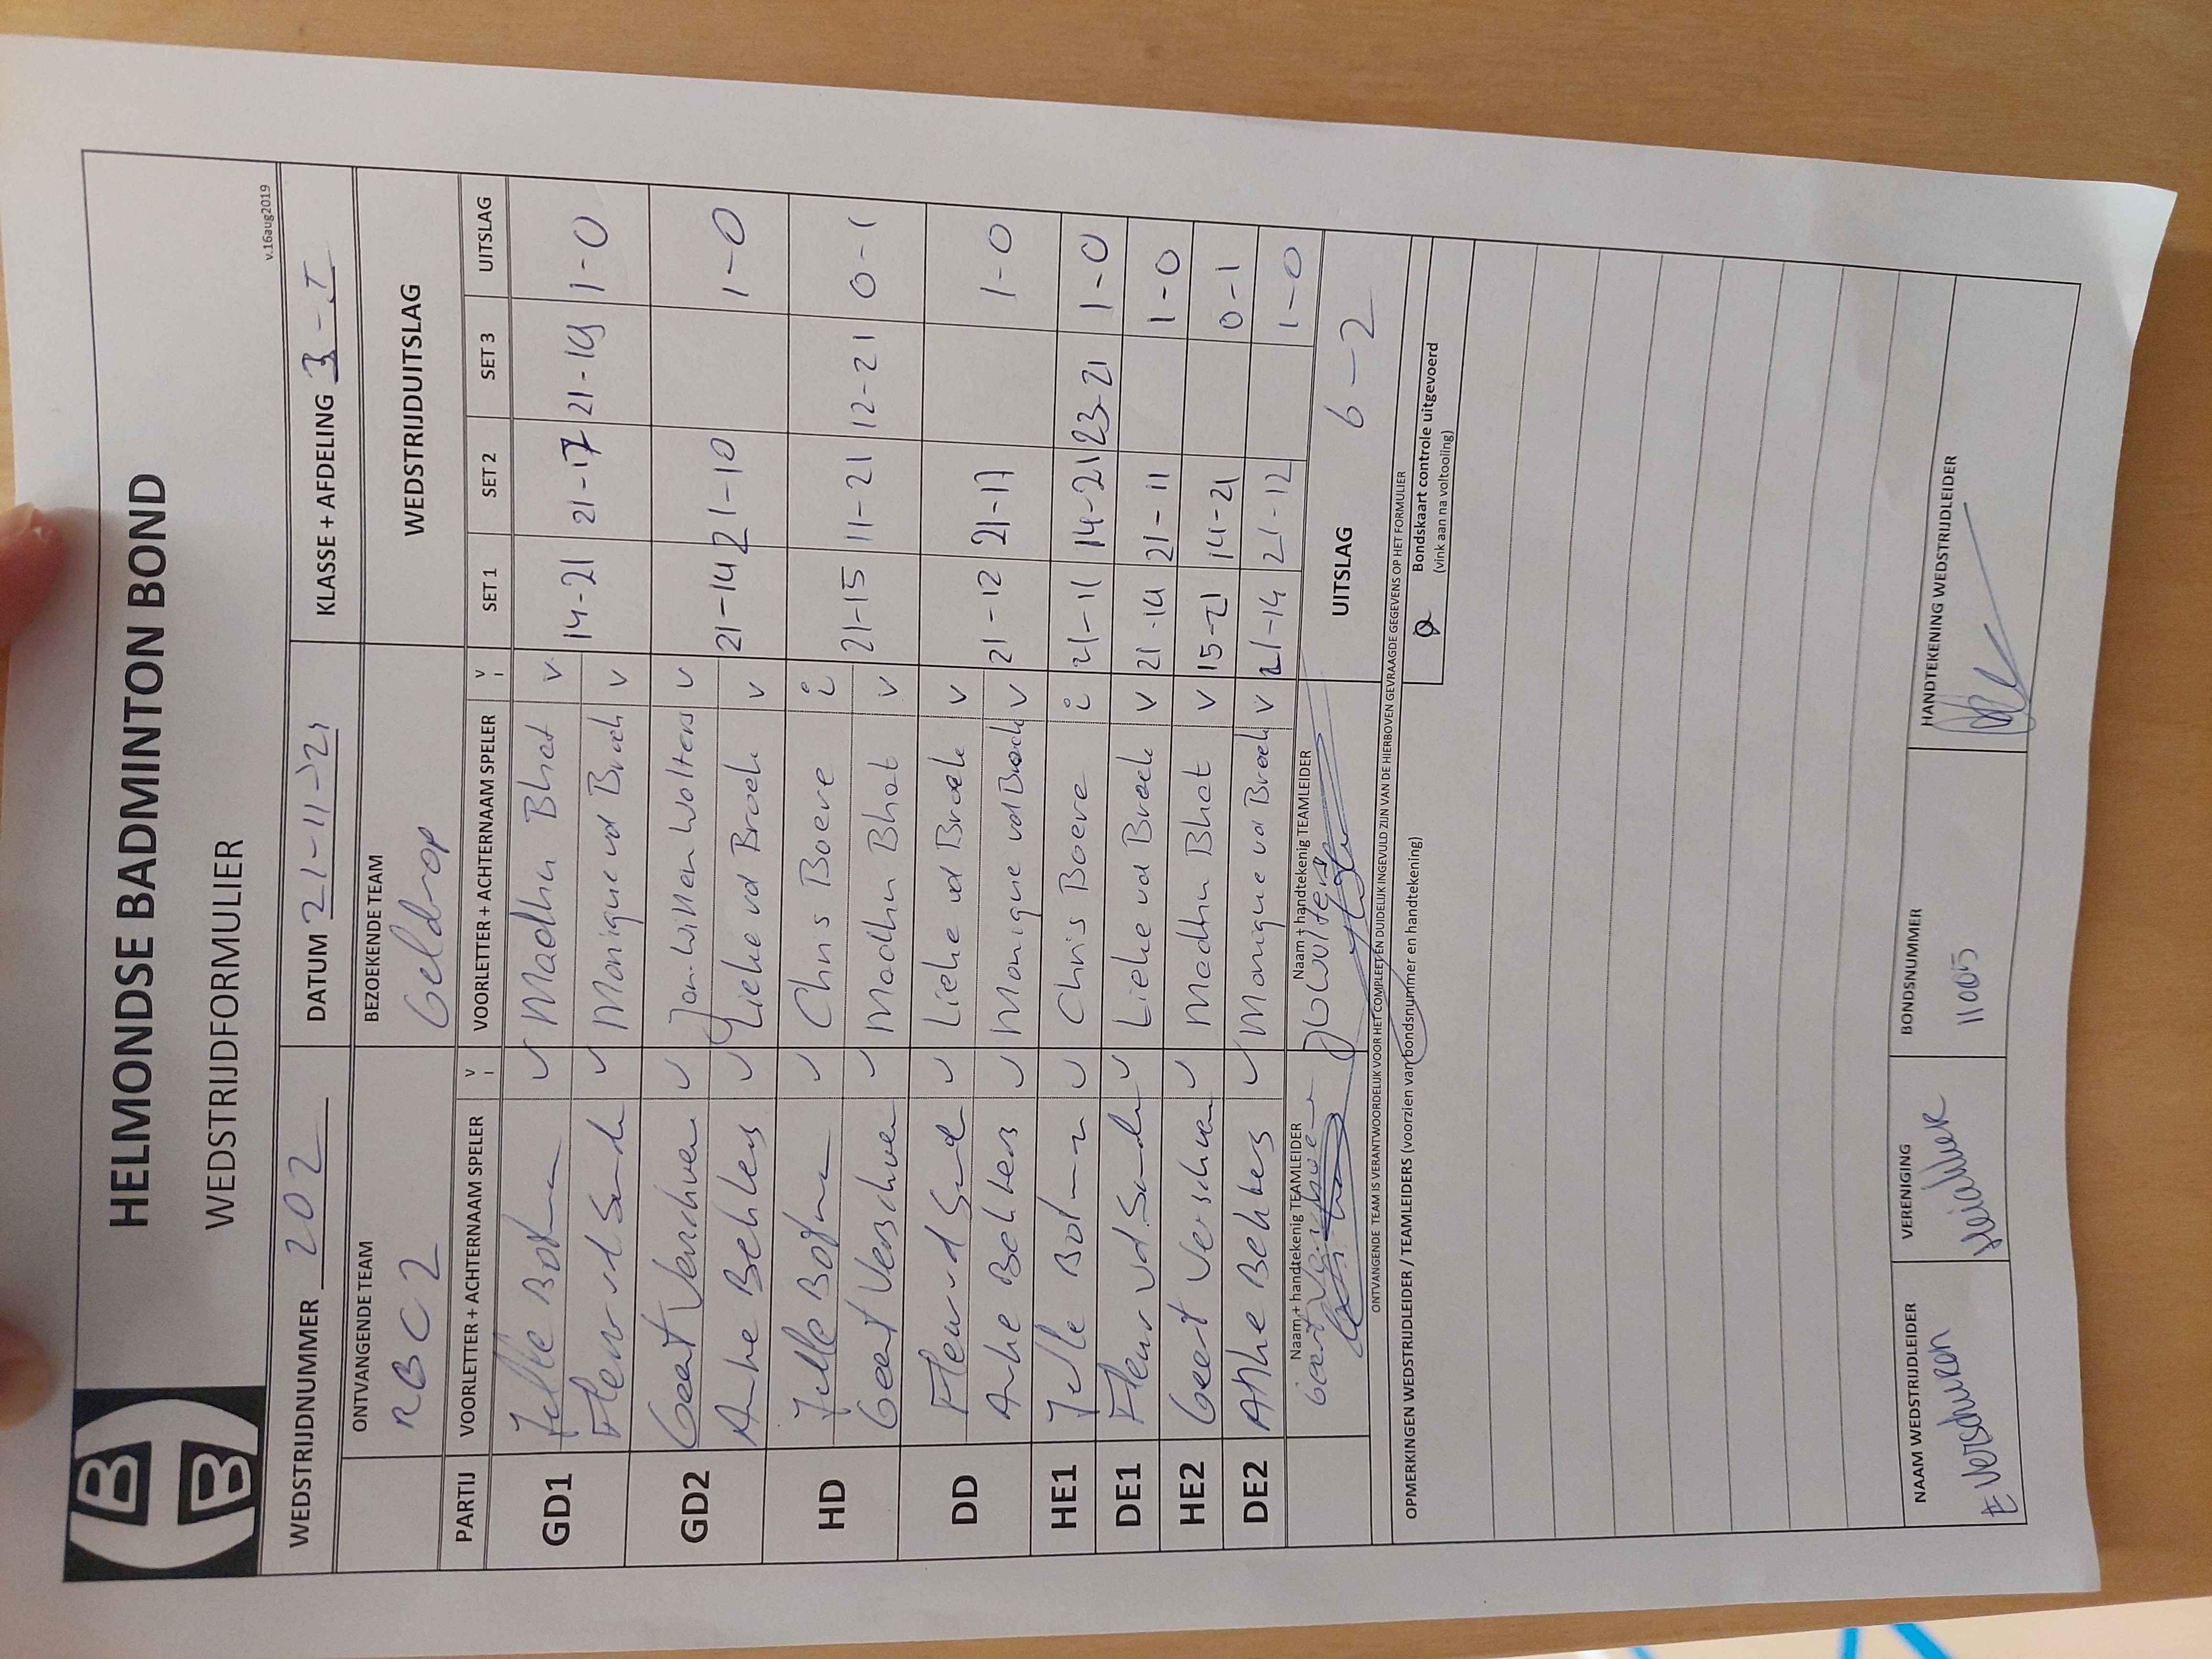 HELMONDSE BADMINTON BOND
WEDSTRIJDFORMULIER
v.16aug2019
WEDSTRIJDNUMMER 202 DATUM 21-11-21 KLASSE + AFDELING 3 - I
ONTVANGENDE TEAM BEZOEKENDE TEAM WEDSTRIJDUITSLAG
RBC 2 Geldrop
PARTIJ VOORLETTER + ACHTERNAAM SPELER V I VOORLETTER + ACHTERNAAM SPELER V I SET 1 SET 2 SET 3 UITSLAG
GD1 Jelle v Madhu Bhat v 14-21 21-17 21-19 1-0
Fleur v Monique vd Broek v
GD2 Geert Verschuren v Jan-Willem Wolters v 21-14 21-10 1-0
Anke Bekkers v Lieke vd Broek v
HD Jelle v Chris Boere i 21-15 11-21 12-21 0-1
Geert Verschuren v Madhu Bhat v
DD Fleur vd v Lieke vd Broek v 21-12 21-17 1-0
Anke Bekkers v Monique vd Broek v
HE1 Jelle v Chris Boere i 21-11 14-21 23-21 1-0
DE1 Fleur vd v Lieke vd Broek v 21-14 21-11 1-0
HE2 Geert Verschuren v Madhu Bhat v 15-21 14-21 0-1
DE2 Anke Bekkers v Monique vd Broek v 21-14 21-12 1-0
Naam + handtekenig TEAMLEIDER Naam + handtekenig TEAMLEIDER UITSLAG 6-2
Geert Verschuren JW Wolters
ONTVANGENDE TEAM IS VERANTWOORDELIJK VOOR HET COMPLEET EN DUIDELIJK INGEVULD ZIJN VAN DE HIERBOVEN GEVRAAGDE GEGEVENS OP HET FORMULIER
OPMERKINGEN WEDSTRIJDLEIDER / TEAMLEIDERS (voorzien van bondsnummer en handtekening)
Bondskaart controle uitgevoerd
(vink aan na voltooiing)
NAAM WEDSTRIJDLEIDER VERENIGING BONDSNUMMER HANDTEKENING WEDSTRIJDLEIDER
E Verschuren 11005